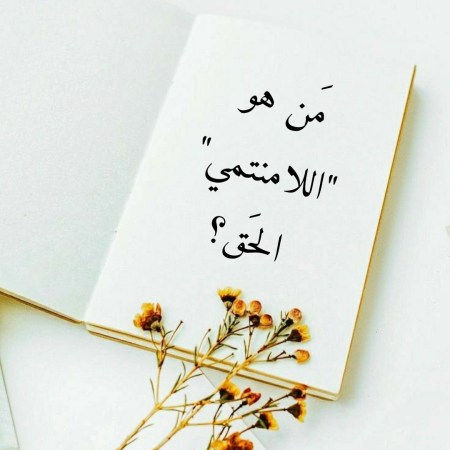 مَن هو
"اللامنتمي"
الحَق؟